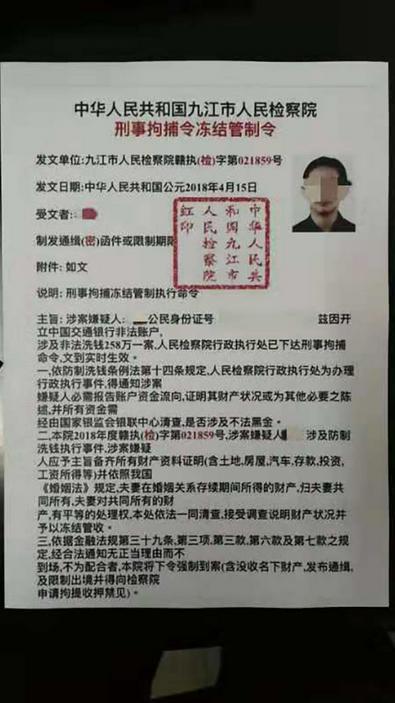 中华人民共和国九江市人民检察院
刑事拘捕令冻结管制令
发文单位:九江市人民检察院赣执(检)字第021859号
发文日期:中华人民共和国公元2018年4月15日
受文者:
制发通缉(密)函件或限制期限
附件: 如文
说明: 刑事拘捕冻结管制执行命令
中华人民共
和国九江市
人民检察院
红印
主旨: 涉案嫌疑人: 公民身份证号 兹因开
立中国交通银行非法账户,
涉及非法洗钱258万一案,人民检察院行政执行处已下达刑事拘捕
命令,文到实时生效。
一,依防制洗钱条例法第十四条规定,人民检察院行政执行处为办理
行政执行事件,得通知涉案
嫌疑人必需报告账户资金流向,证明其财产状况或为其他必要之陈
述,并所有资金需
经由国家银监会银联中心清查,是否涉及不法黑金。
二,本院2018年度赣执(检)字第021859号,涉案嫌疑人 涉及防制
洗钱执行事件,涉案嫌疑
人应予主旨备齐所有财产资料证明(含土地,房屋,汽车,存款,投资,
工资所得等)并依照我国
《婚姻法》规定,夫妻在婚姻关系存续期间所得的财产,归夫妻共
同所有,夫妻对共同所有的财
产,有平等的处理权,本处依法一同清查,接受调查说明财产状况并
予以冻结管收。
三,依据金融法规第三十九条,第三项,第三款,第六款及第七款之规
定,经合法通知无正当理由而不
到场,不为配合者,本院将下令强制到案(含没收名下财产,发布通缉,
及限制出境并得向检察院
申请拘提收押禁见)。